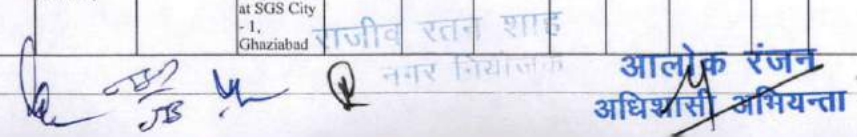 at SGS City
- 1,
Ghaziabad
राजीव रतन शाह
नगर नियोजक
आलोक रंजन
अधिशासी अभियन्ता
JB